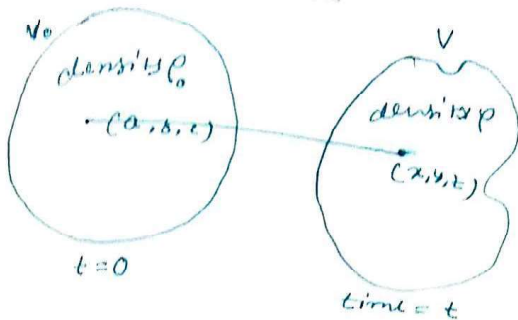 V₀
density ρ₀
(a, b, c)
t = 0
V
density ρ
(x, y, z)
time = t